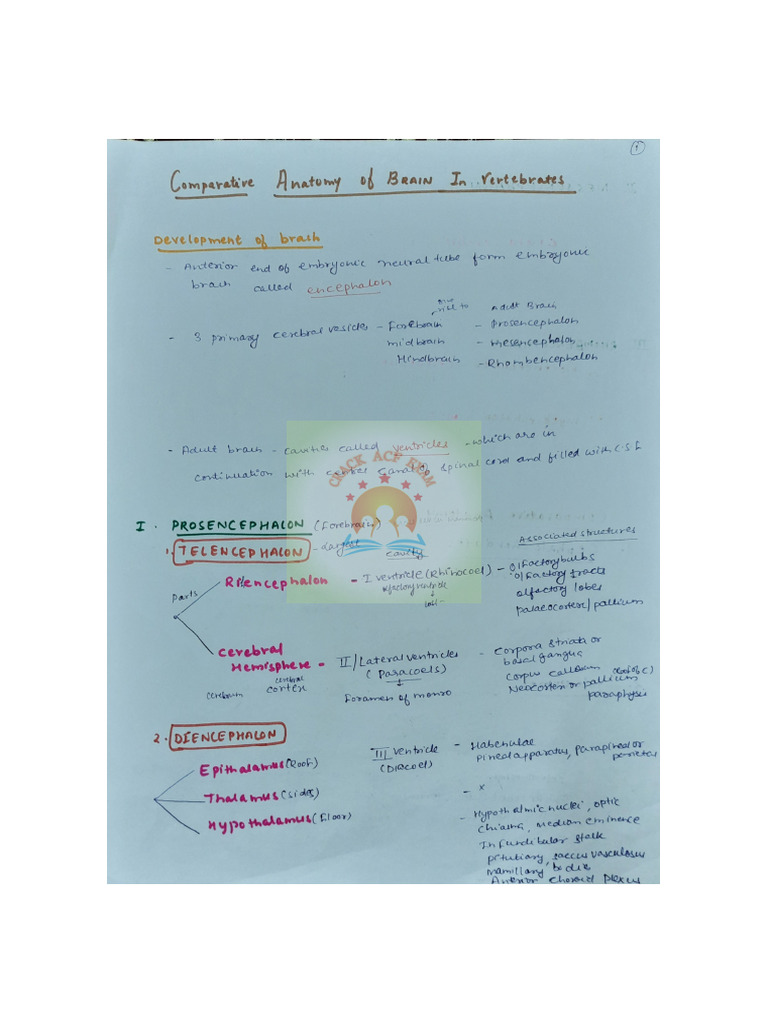 1
Comparative Anatomy of BRAIN In Vertebrates
Development of brain
- Anterior end of embryonic neural tube form embryonic
brain called encephalon
give rise to Adult Brain
- 3 primary cerebral vesicles - Forebrain - Prosencephalon
midbrain - Mesencephalon
Hindbrain - Rhombencephalon
- Adult brain - cavities called ventricles - which are in
continuation with canal of spinal cord and filled with C.S.F.
CRACK ACF ECRM
I. PROSENCEPHALON (forebrain)
Associated structures
1. TELENCEPHALON - Largest
cavity
parts
Rhiencephalon - I ventricle (Rhinocoel) - olfactory bulbs
olfactory ventricle olfactory tracts
olfactory lobes
palaeocortex/pallium
cerebral
Hemisphere - II/Lateral ventricles - Corpora striata or
(Paracoels) basal ganglia
cerebrum cerebral cortex
Foramen of monro
corpus callosum
Neocortex or pallium
paraphysis
2. DIENCEPHALON
III ventricle - Habenulae
(Diocoel) pineal apparatus, parapineal or
parietal
Epithalamus (Roof)
Thalamus (sides) - x
Hypothalamus (floor) - Hypothalmic nuclei, optic
chiasma, median eminence
Infundibular stalk
pitutiary, saccus vasculosus
mamillary bodies
Anterior choroid plexus